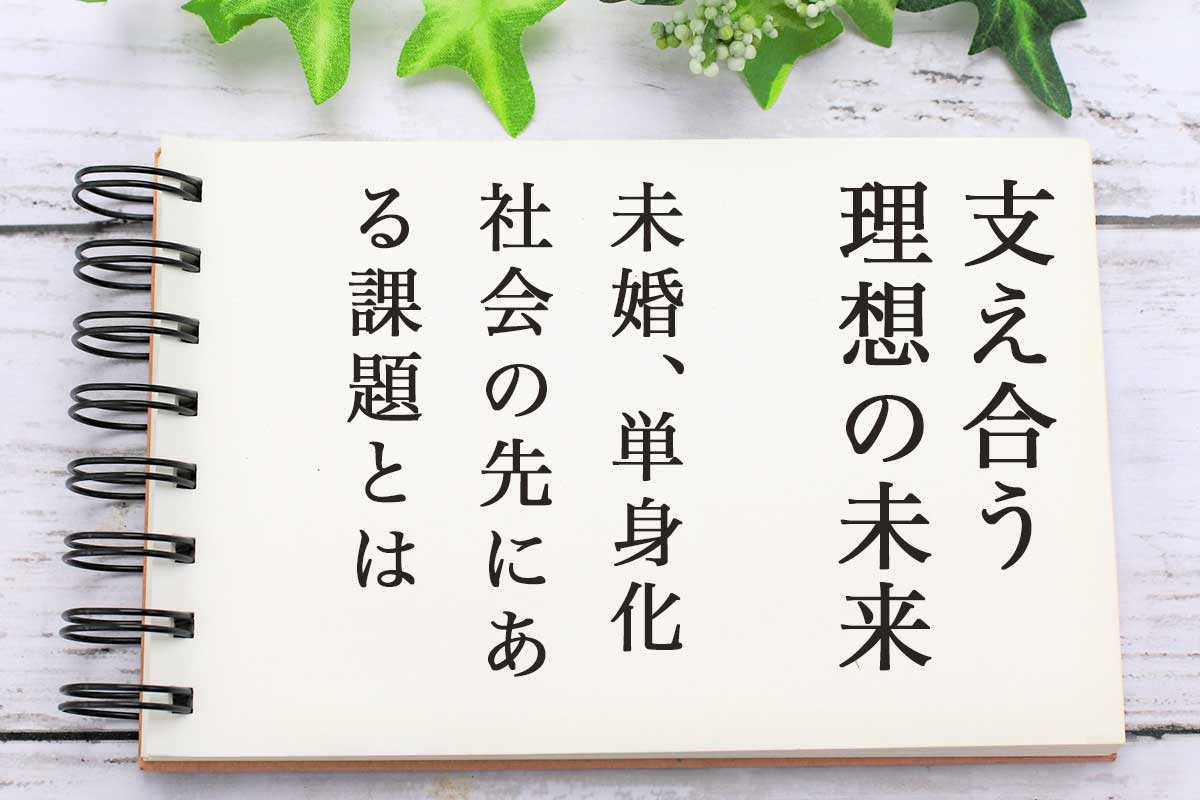 支え合う
理想の未来
未婚、単身化
社会の先にあ
る課題とは